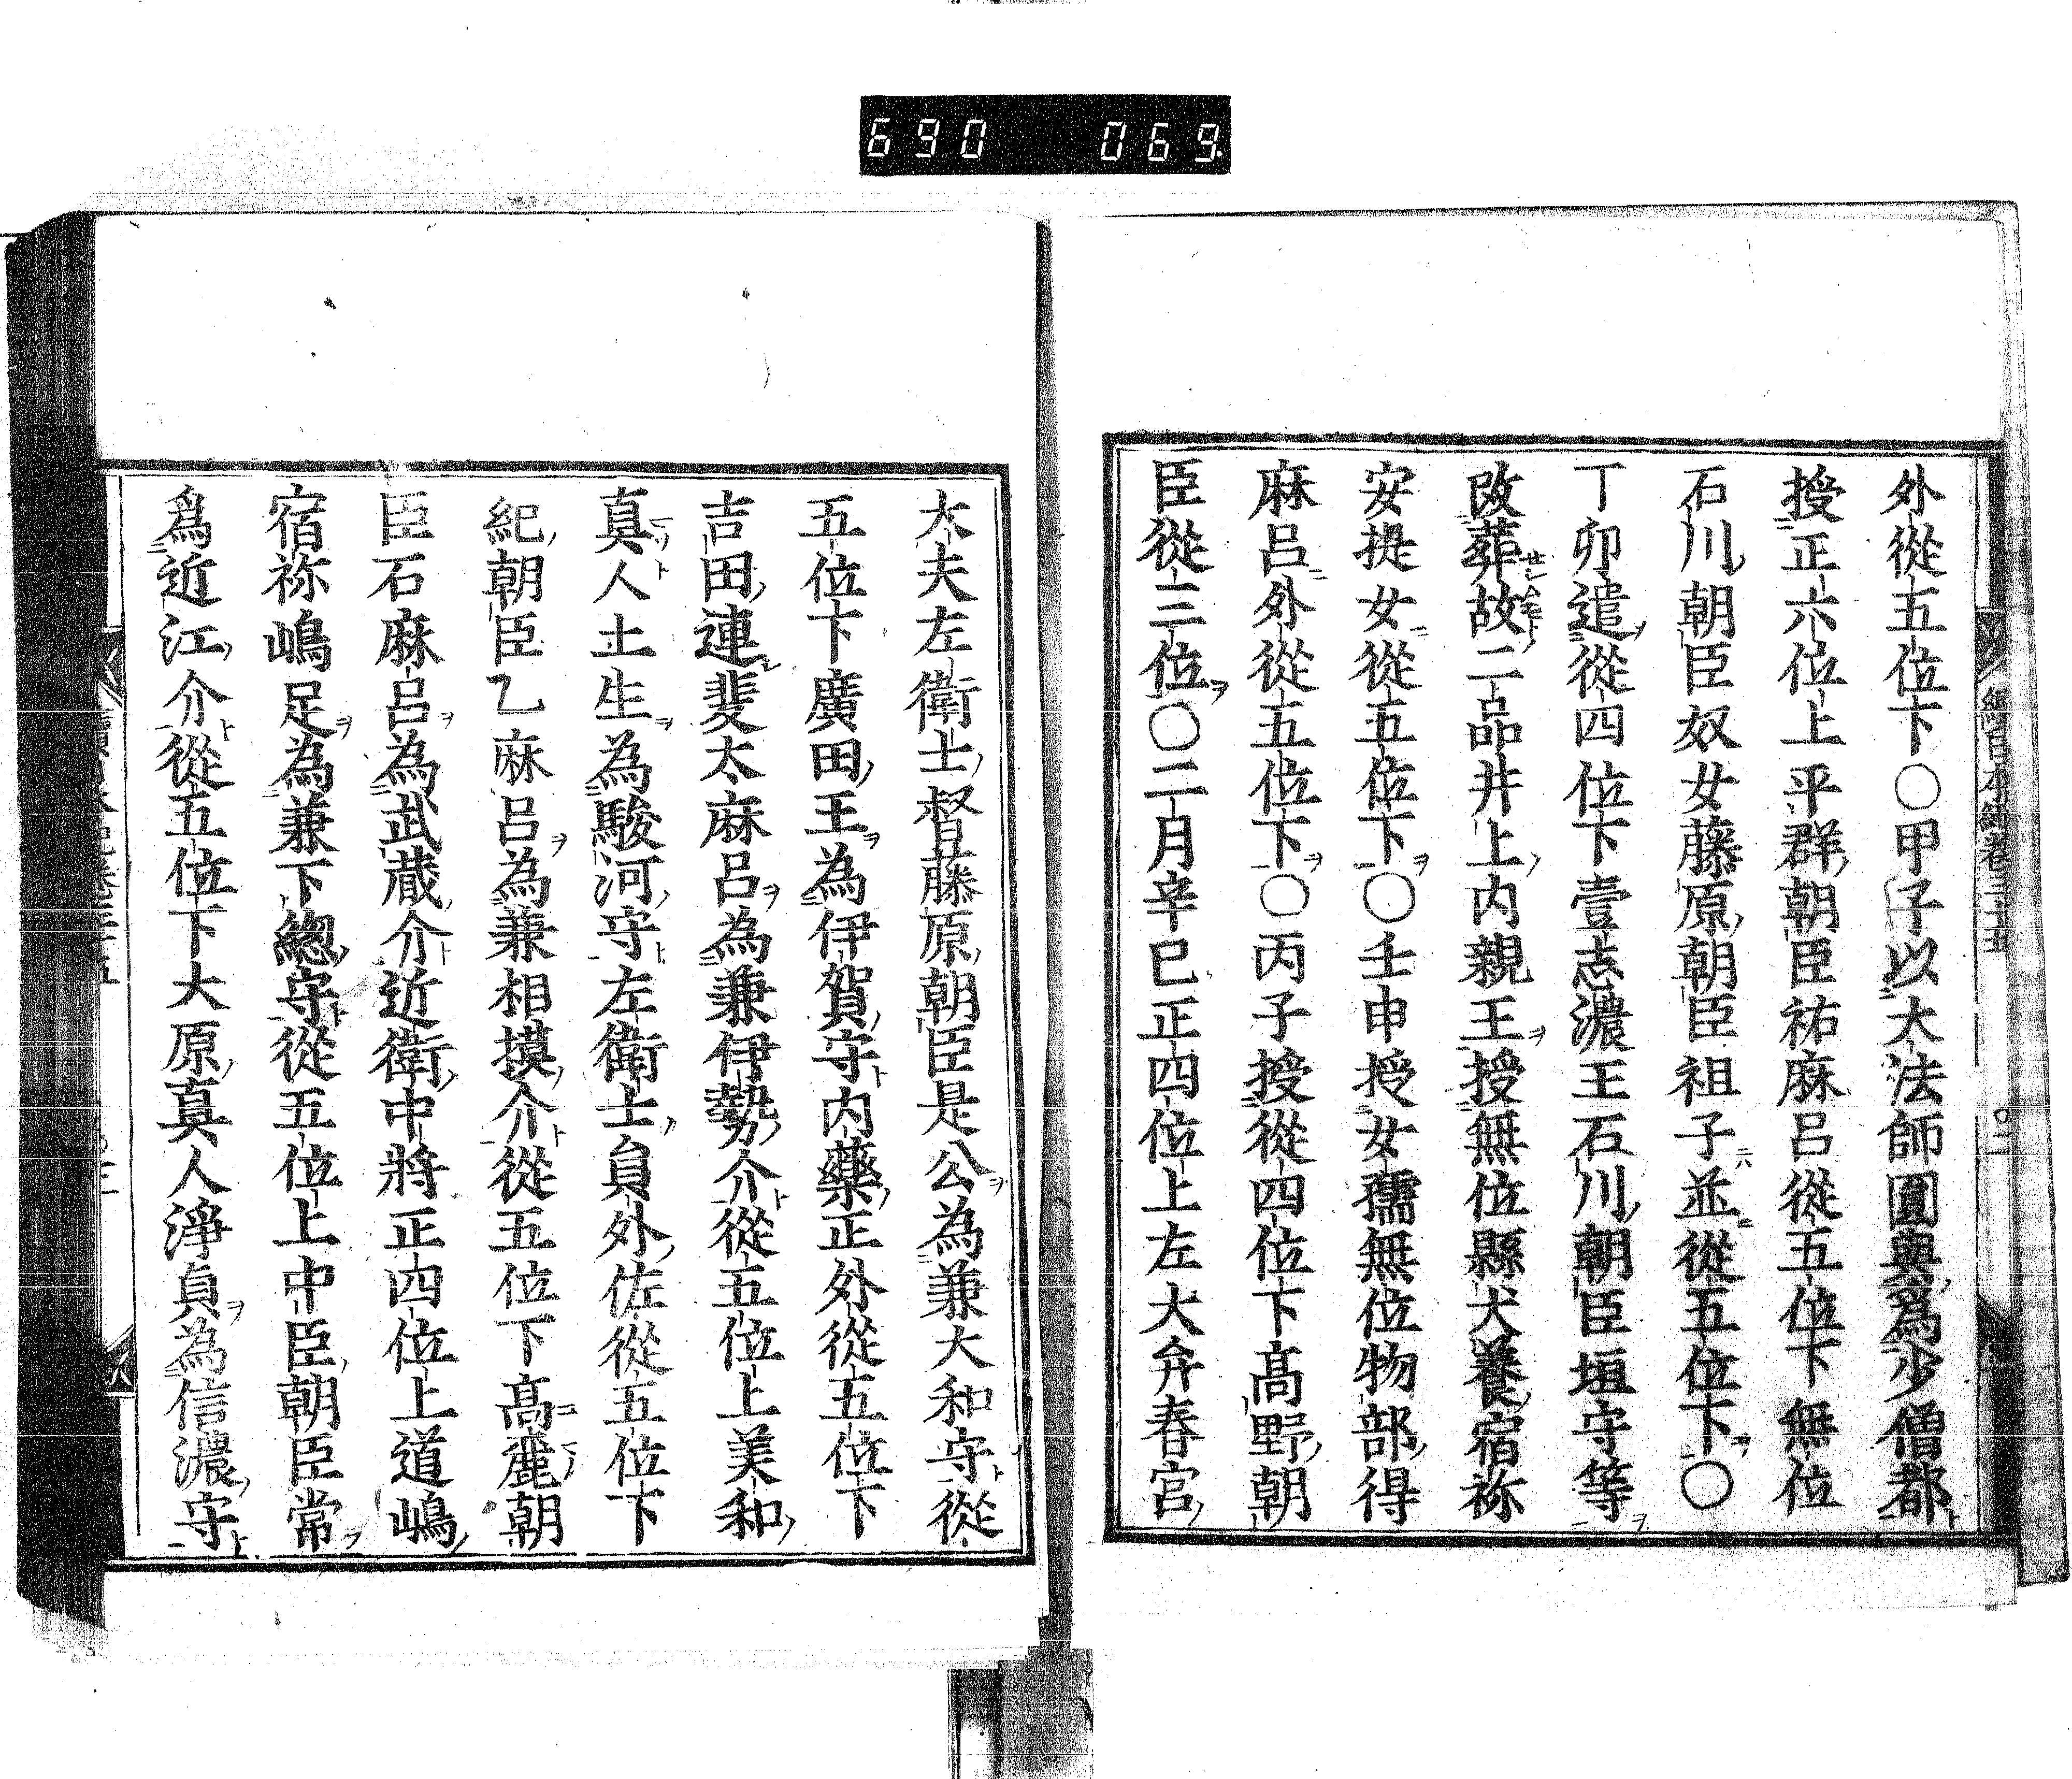 690 069
外從五位下〇甲子以大法師圓與爲少僧都
授正六位上平群朝臣祐麻呂從五位下無位
石川朝臣奴女藤原朝臣祖子並從五位下〇
丁卯遣從四位下壹志濃王石川朝臣垣守等
改葬故二品井上内親王授無位縣犬養宿祢
安提女從五位下〇壬申授女孺無位物部得
麻呂外從五位下〇丙子授從四位下髙野朝
臣從三位〇二月辛巳正四位上左大弁春宮
大夫左衛士督藤原朝臣是公為兼大和守從
五位下廣田王為伊賀守内藥正外從五位下
吉田連斐太麻呂為兼伊勢介從五位上美和
真人土生為駿河守左衛士員外佐從五位下
紀朝臣乙麻呂為兼相摸介從五位下髙麗朝
臣石麻呂為武蔵介近衛中將正四位上道嶋
宿祢嶋足為兼下總守從五位上中臣朝臣常
爲近江介從五位下大原真人淨貞為信濃守